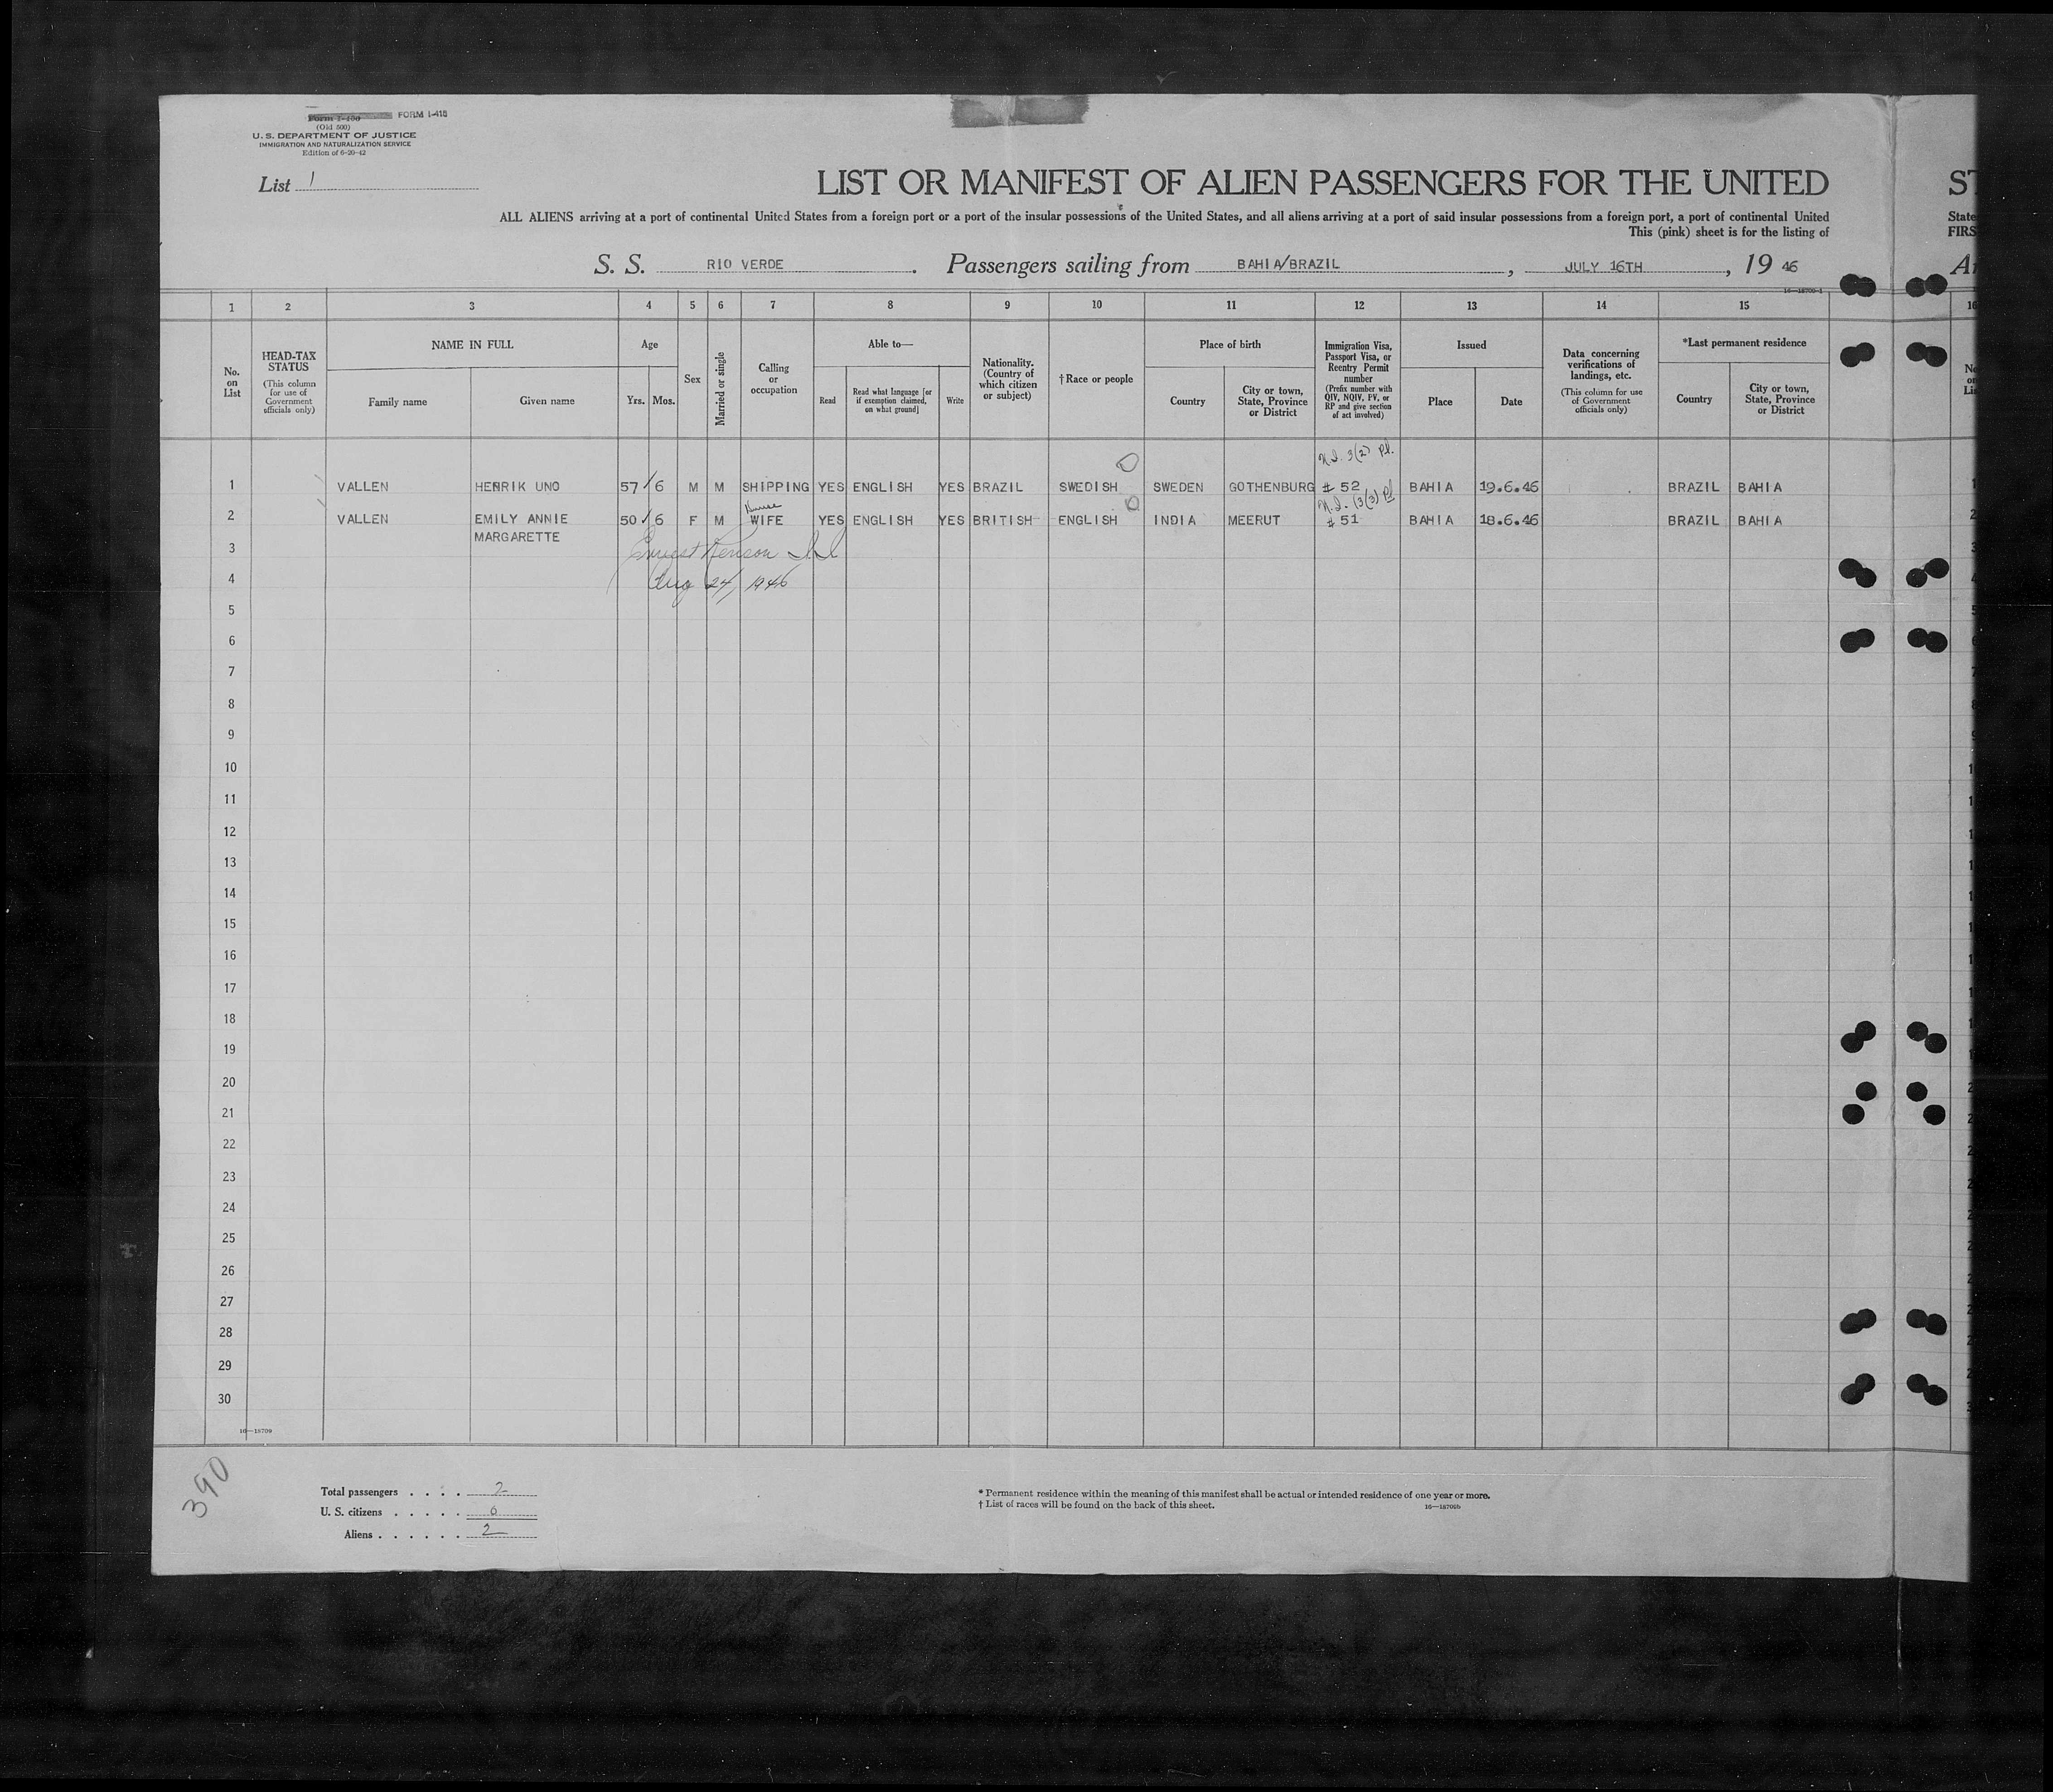 Form I-400 FORM I-415
(Old 500)
U. S. DEPARTMENT OF JUSTICE
IMMIGRATION AND NATURALIZATION SERVICE
Edition of 6-20-42
List 1
LIST OR MANIFEST OF ALIEN PASSENGERS FOR THE UNITED ST
ALL ALIENS arriving at a port of continental United States from a foreign port or a port of the insular possessions of the United States, and all aliens arriving at a port of said insular possessions from a foreign port, a port of continental United State
This (pink) sheet is for the listing of FIRS
S. S. RIO VERDE. Passengers sailing from BAHIA/BRAZIL, JULY 16TH, 19 46
1 2 3 4 5 6 7 8 9 10 11 12 13 14 15 16
No. on List
HEAD-TAX STATUS
(This column for use of Government officials only)
NAME IN FULL
Family name
Given name
Age
Yrs. Mos.
Sex
Married or single
Calling or occupation
Able to—
Read
Read what language [or if exemption claimed, on what ground]
Write
Nationality. (Country of which citizen or subject)
†Race or people
Place of birth
Country
City or town, State, Province or District
Immigration Visa, Passport Visa, or Reentry Permit number
(Prefix number with QIV, NQIV, PV, or RP and give section of act involved)
Issued
Place
Date
Data concerning verifications of landings, etc.
(This column for use of Government officials only)
*Last permanent residence
Country
City or town, State, Province or District
N.I. 3(2) Pl.
1 VALLEN HENRIK UNO 57/6 M M SHIPPING YES ENGLISH YES BRAZIL SWEDISH SWEDEN GOTHENBURG # 52 BAHIA 19.6.46 BRAZIL BAHIA
N.I. (3(3) Pl
2 VALLEN EMILY ANNIE 50/6 F M WIFE YES ENGLISH YES BRITISH ENGLISH INDIA MEERUT # 51 BAHIA 18.6.46 BRAZIL BAHIA
MARGARETTE
3
4 Aug 24, 1946
5
6
7
8
9
10
11
12
13
14
15
16
17
18
19
20
21
22
23
24
25
26
27
28
29
30
16—18709
390
Total passengers . . . . 2
U. S. citizens . . . . . 0
Aliens . . . . . . 2
* Permanent residence within the meaning of this manifest shall be actual or intended residence of one year or more.
† List of races will be found on the back of this sheet.